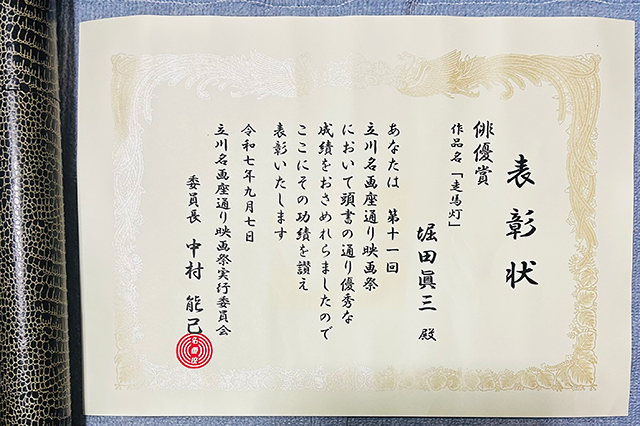 表彰状
俳優賞
作品名「走馬灯」
堀田眞三 殿
あなたは 第十一回
立川名画座通り映画祭
において頭書の通り優秀な
成績をおさめれらましたので
ここにその功績を讃え
表彰いたします
令和七年九月七日
立川名画座通り映画祭実行委員会
委員長 中村 能己